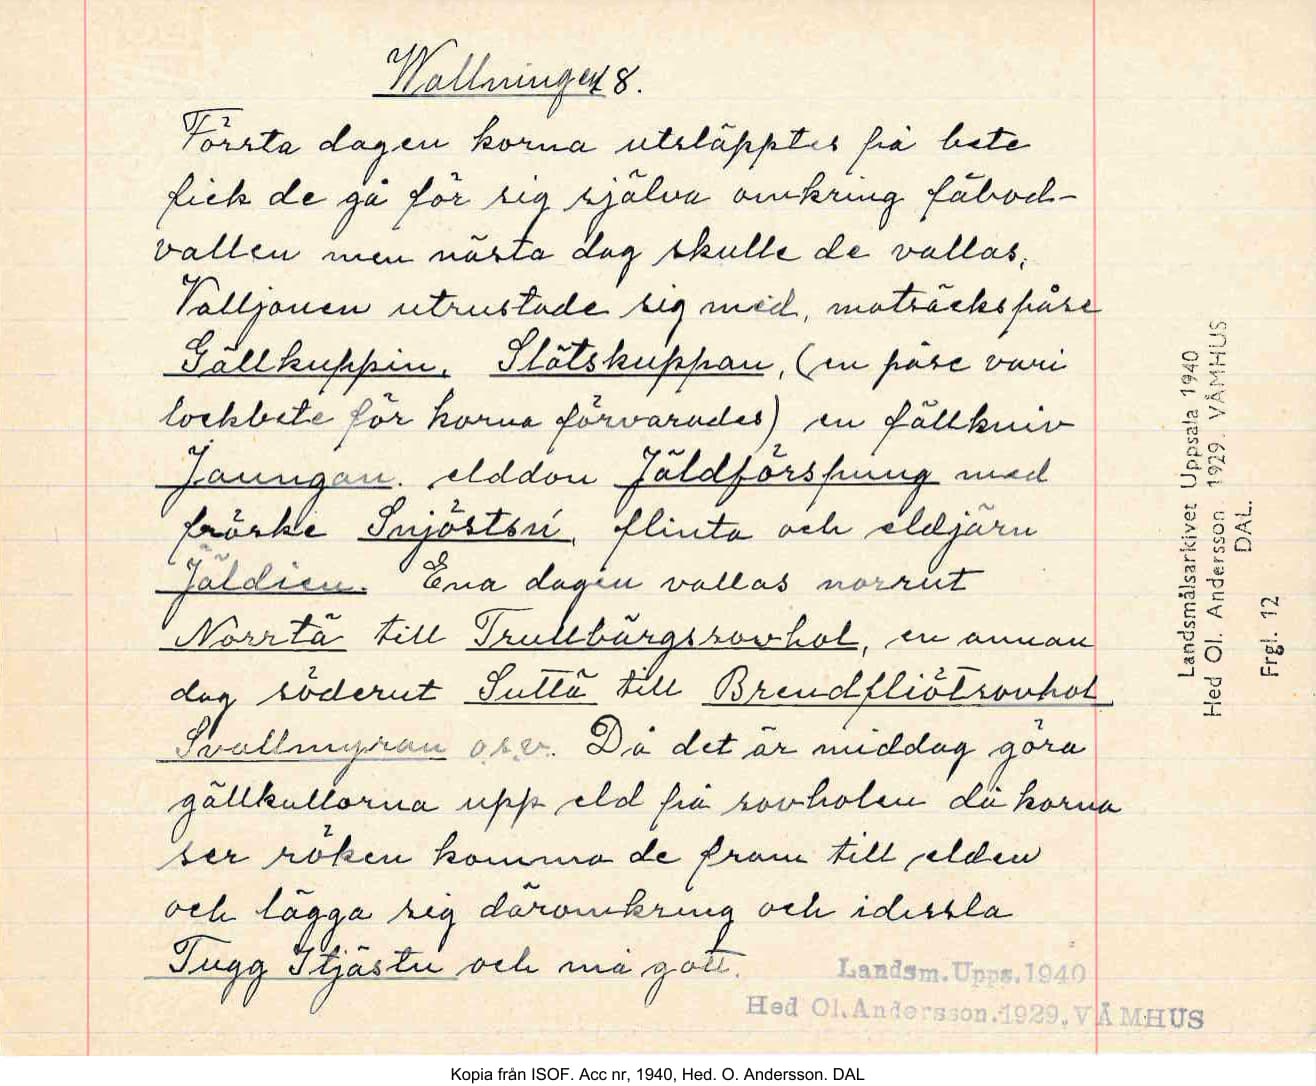 Wallningen 8.
Första dagen korna utsläpptes på bete
fick de gå för sig själva omkring fäbod-
vallen men nästa dag skulle de vallas.
Valljouen utrustade sig med, matsäckspåse
Gällkuppin, Slötskuppan, (en påse vari
lockbete för korna förvarades) en fällkniv
Jaungan. elddon Jäldförspung med
fröske Snjöstsn, flinta och eldjärn
Jäldien. Ena dagen vallas norrut
Norrtä till Trullbärgsrovhol, en annan
dag söderut Suttä till Brendfliötsovhol
Svallmyran o.s.v. Då det är middag göra
gällkullorna upp eld på sovholen då korna
ser röken komma de fram till elden
och lägga sig däromkring och idissla
Tugg Itjästu och må gott.
Landsm. Upps. 1940
Hed Ol. Andersson. 1929. VÅMHUS
Landsmålsarkivet Uppsala 1940
Hed Ol. Andersson 1929. VÅMHUS
DAL.
Frgl. 12
Kopia från ISOF. Acc nr, 1940, Hed. O. Andersson. DAL